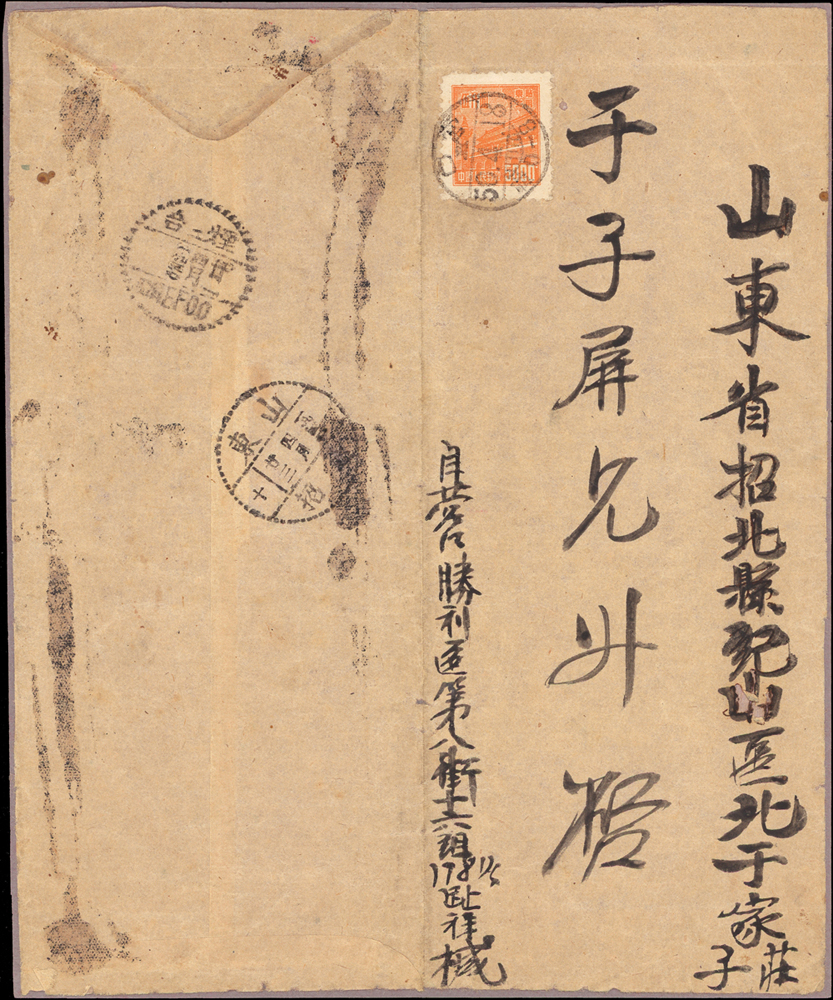 山東省招北縣紀山區北于家莊子
于子屏兄 啓
自營口勝利區第八街十六組178
5000
煙台
CHEFOO
山東
招
四月
廿三
十